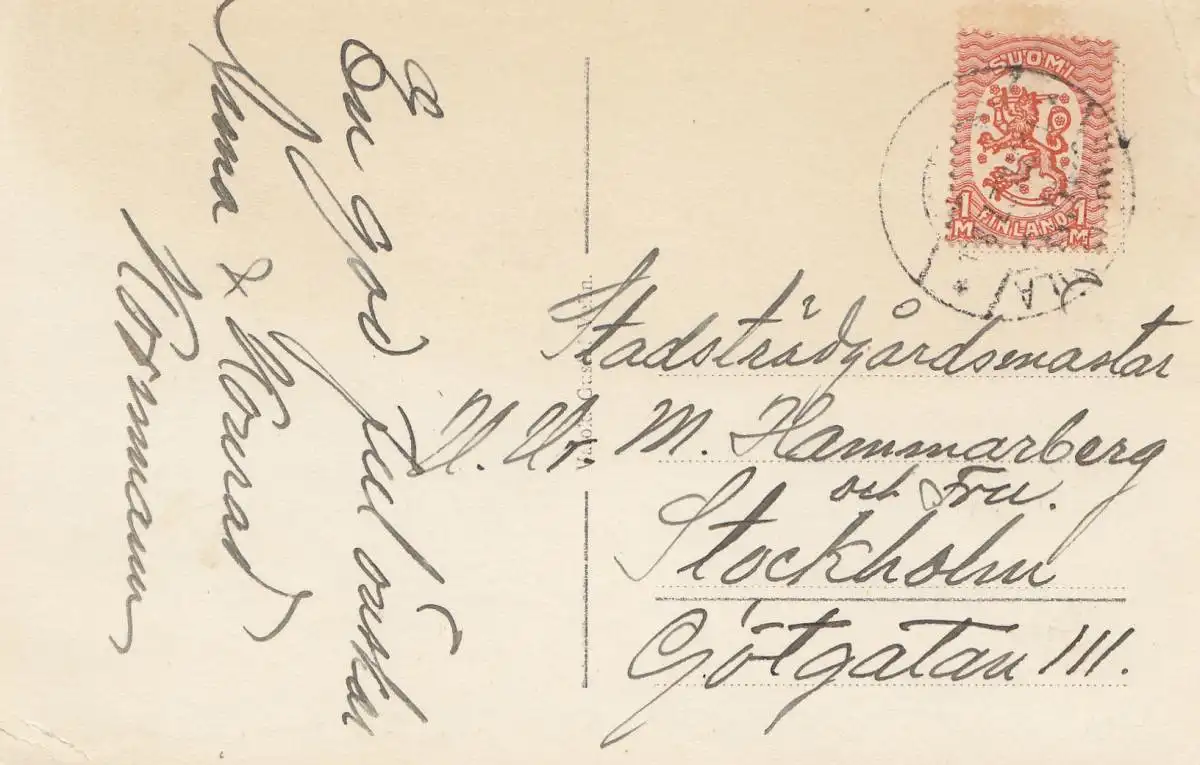 En god Jul önskar
Anna & Konrad
Wormann
SUOMI
FINLAND
1 M
1 M
Stadsträdgårdsmästar
M. Hammarberg
och Fru.
Stockholm
Götgatan 111.